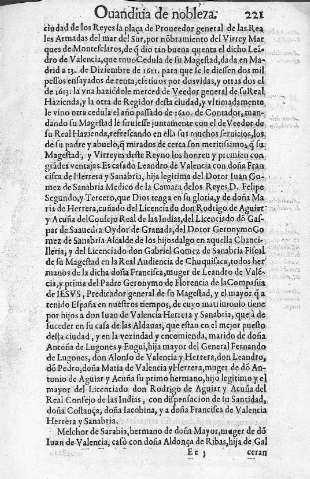 Quanditia de nobleza. 221
ciudad de los Reyes la plaça de Proueedor general de las Rea
les Armadas del mar del Sur, por nõbramiento del Virrey Mar
ques de Montesclaros, de q̃ dio tan buena quenta el dicho Lean
dro de Valencia, que tuuo Cedula de su Magestad, dada en Ma-
drid a 13. de Diziembre de 1611. para que se le diessen dos mil
pessos ensayados de renta, efectiuos por dos vidas, y otras dos el
de 1613: la vna haziédole merced de Veedor general de su Real
Hazienda, y la otra de Regidor desta ciudad, y vltimadamente
le vino otra cedula el año passado de 1620. de Contador, man-
dando su Magestad le siruiesse juntamente con el de Veedor de
su Real Hazienda, refrescando en ella sus muchos seruicios, los
de su padre y abuelo, q̃ mirados de cerca son meritissimos, q̃ su
Magestad, y Virreyes deste Reyno los honren y premien con
grandes ventajas. Es casado Leandro de Valencia con doña Fran
cisca de Herrera y Sanabria, hija legitima del Dotor Iuan Go-
mez de Sanabria Medico de la Camara de los Reyes D. Felipe
Segundo, y Tercero, que Dios tenga en su gloria, y de doña Ma
ria de Herrera, cuñado del Licenciado don Rodrigo de Aguiar
y Acuña del Consejo Real de las Indias, del Licenciado dõ Gas-
par de Saauedra Oydor de Granada, del Dotor Geronymo Go
mez de Sanabria Alcalde de los hijosdalgo en aquella Chanci-
lleria, y del Licenciado don Gabriel Gomez de Sanabria Fiscal
de su Magestad en la Real Audiencia de Chuquisaca, todos her
manos de la dicha doña Francisca, muger de Leandro de Valé-
cia, y prima del Padre Geronymo de Florencia de la Compañia
de IESVS, Predicador general de su Magestad, y el mayor q̃ a
tenido España en nuestros tiempos, de cuyo matrimonio tiene
por hijos a don Iuan de Valencia Herrera y Sanabria, que a de
suceder en su casa de las Aldauas, que estan en el mejor puesto
desta ciudad, y en la vezindad y encomienda, marido de doña
Antonia de Lugones y Engui, hija mayor del General Fernando
de Lugones, don Alonso de Valencia y Herrera, don Leandro,
dõ Pedro, doña Maria de Valencia y Herrera, muger de dõ An-
tonio de Aguiar y Acuña su primo hermano, hijo legitimo y el
mayor del Licenciado don Rodrigo de Aguiar y Acuña del
Real Consejo de las Indias, con dispensacion de su Santidad,
doña Costança, doña Iacobina, y a doña Francisca de Valencia
Herrera y Sanabria.
Melchor de Sarabia, hermano de doña Mayor, muger de dõ
Iuan de Valencia, casò con doña Aldonça de Ribas, hija de Gal
Ee 3 ceran